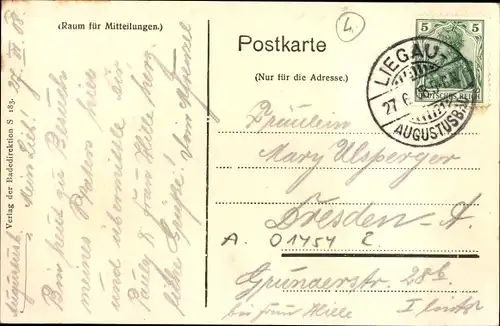 (Raum für Mitteilungen.)
Postkarte
(Nur für die Adresse.)
4.
5 5
DEUTSCHES REICH
LIEGAU
27.6.
AUGUSTUSBAD
Verlag der Badedirektion S 183.
27. VI 08.
Mein Lieb!
Bin heut zu Besuch
meines hier
und übermittle Dir,
Pauly & Frau Wille herz
liche Grüße.
Fräulein
Mary Ulsperger
Dresden-A.
A. 01454 2
Grunaerstr. 28b
bei Frau Wille I links